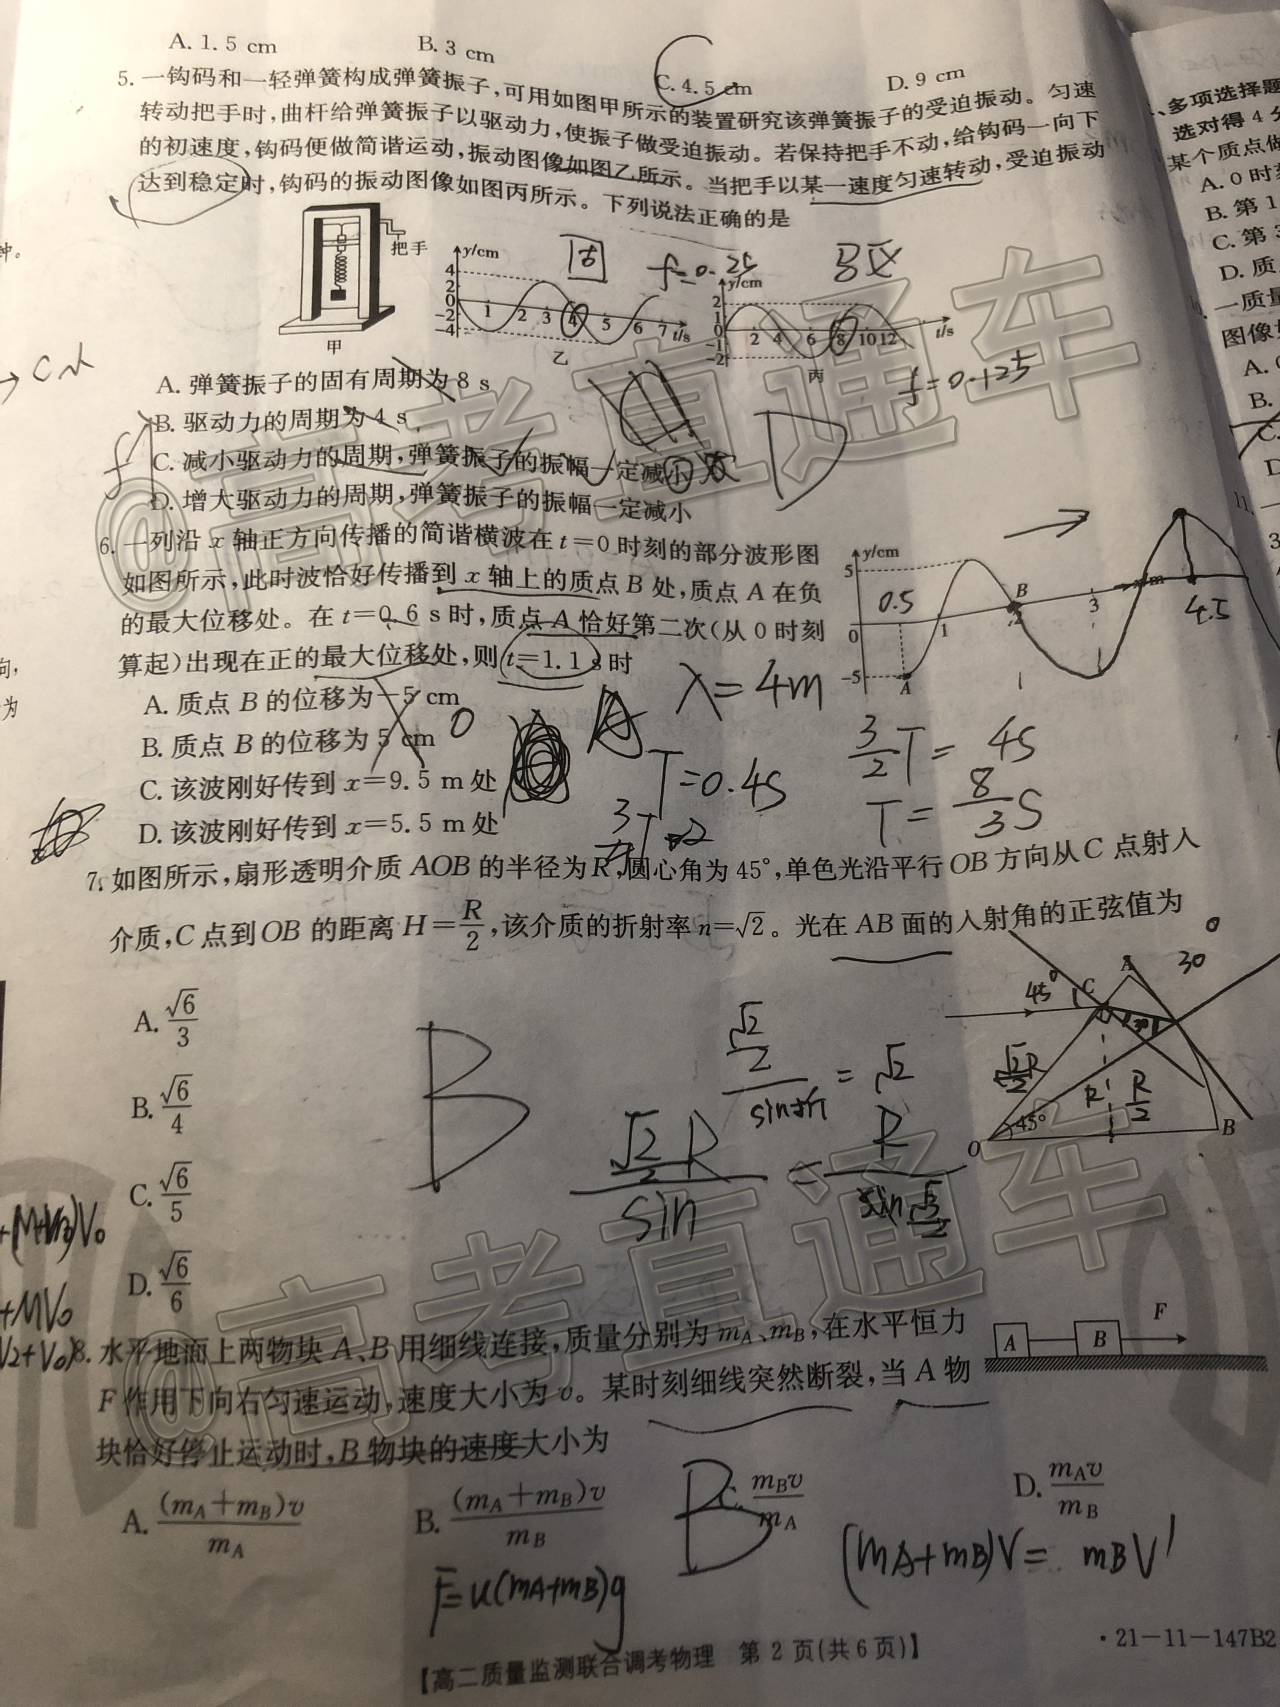 A. 1.5 cm B. 3 cm C. 4.5 cm D. 9 cm
5. 一钩码和一轻弹簧构成弹簧振子，可用如图甲所示的装置研究该弹簧振子的受迫振动。匀速
转动把手时，曲杆给弹簧振子以驱动力，使振子做受迫振动。若保持把手不动，给钩码一向下
的初速度，钩码便做简谐运动，振动图像如图乙所示。当把手以某一速度匀速转动，受迫振动
达到稳定时，钩码的振动图像如图丙所示。下列说法正确的是
把手
甲
y/cm
4
2
0
-2
-4
1 2 3 4 5 6 7 t/s
乙
f=0.25
y/cm
2
1
0
-1
-2
2 4 6 8 10 12 t/s
丙
f=0.125
A. 弹簧振子的固有周期为 8 s
B. 驱动力的周期为 4 s
C. 减小驱动力的周期，弹簧振子的振幅一定减小
D. 增大驱动力的周期，弹簧振子的振幅一定减小
D
6. 一列沿 x 轴正方向传播的简谐横波在 t=0 时刻的部分波形图
如图所示，此时波恰好传播到 x 轴上的质点 B 处，质点 A 在负
的最大位移处。在 t=0.6 s 时，质点 A 恰好第二次(从 0 时刻
算起)出现在正的最大位移处，则 t=1.1 s 时
y/cm
5
0
-5
0.5
A
1
B
2
3
4.5
A. 质点 B 的位移为 -5 cm
B. 质点 B 的位移为 5 cm
C. 该波刚好传到 x=9.5 m 处
D. 该波刚好传到 x=5.5 m 处
0
λ=4m
T=0.4s
3/2 T = 4s
T = 8/3 S
7. 如图所示，扇形透明介质 AOB 的半径为 R，圆心角为 45°，单色光沿平行 OB 方向从 C 点射入
介质，C 点到 OB 的距离 H=R/2，该介质的折射率 n=√2。光在 AB 面的入射角的正弦值为
A. √6/3
B. √6/4
C. √6/5
D. √6/6
B
45°
C
A
30°
45°
O
B
R/2
8. 水平地面上两物块 A、B 用细线连接，质量分别为 mA、mB，在水平恒力
F 作用下向右匀速运动，速度大小为 v。某时刻细线突然断裂，当 A 物
块恰好停止运动时，B 物块的速度大小为
A B F
A. (mA+mB)v/mA B. (mA+mB)v/mB C. mBv/mA D. mAv/mB
B
F=u(mA+mB)g
(mA+mB)V = mBV'
【高二质量监测联合调考物理 第 2 页(共 6 页)】
·21-11-147B2
@高考直通车
@高考直通车
、多项选择题
选对得 4 分
某个质点做
A. 0 时刻
B. 第 1
C. 第 3
D. 质
一质量
图像